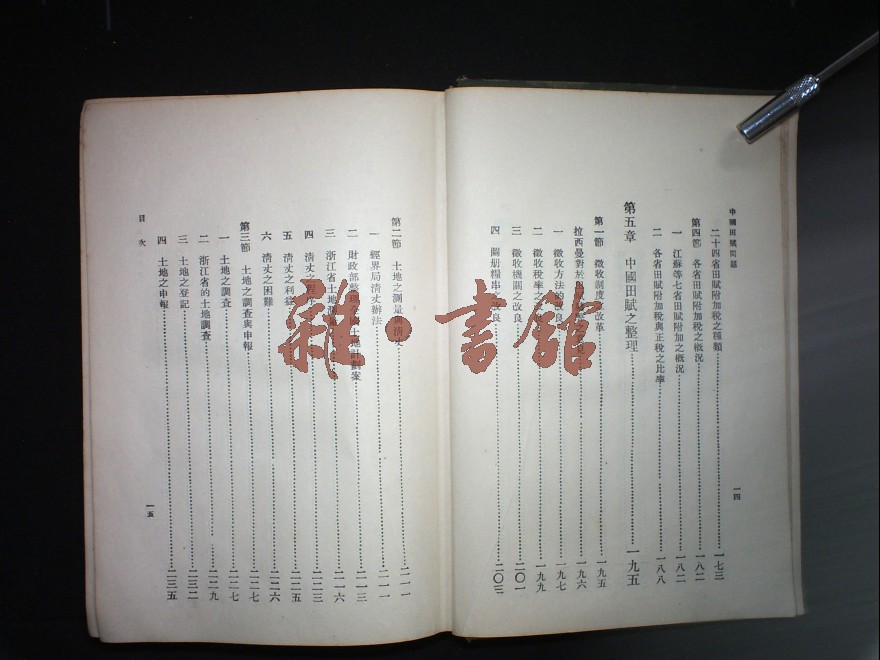 中國田賦問題
二十四省田賦附加稅之種類 一七三
第四節 各省田賦附加稅之概況 一八二
一 江蘇等七省田賦附加之概況 一八二
二 各省田賦附加稅與正稅之比率 一八八
第五章 中國田賦之整理 一九五
第一節 徵收制度 改革 一九五
拉西曼對於 一九六
一 徵收方法的 良 一九七
二 徵收稅率之 一九九
三 徵收機關之改良 二〇一
四 關册糧串之改良 二〇三
一四
第二節 土地之測量與清丈 二一一
一 經界局清丈辦法 二一一
二 財政部整理 土地計劃案 二一三
三 浙江省土地調 二一六
四 清丈之 二二三
五 清丈之利益 二二五
六 清丈之困難 二二六
第三節 土地之調查與申報 二二七
一 土地之調查 二二七
二 浙江省的土地調查 二二九
三 土地之登記 二三二
四 土地之申報 二三五
目次
一五
雜·書館